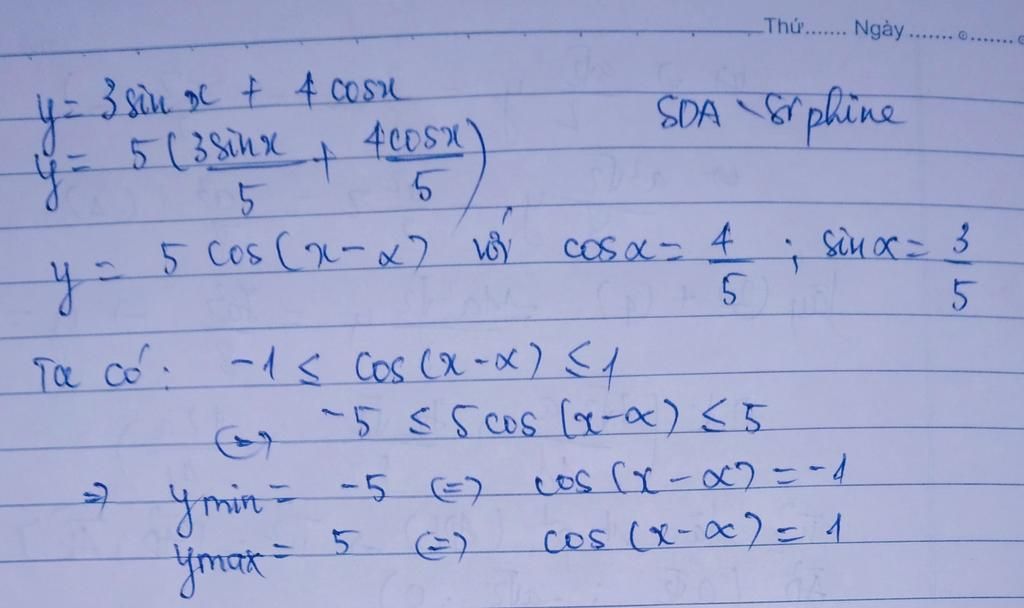 Thứ....... Ngày...............
y = 3sinx + 4cosx
SDA - Srphine
y = 5(3sinx/5 + 4cosx/5)
y = 5cos(x-α) với cosα = 4/5 ; sinα = 3/5
Ta có: -1 ≤ cos(x-α) ≤ 1
(=) -5 ≤ 5cos(x-α) ≤ 5
=) ymin = -5 (=) cos(x-α) = -1
ymax = 5 (=) cos(x-α) = 1